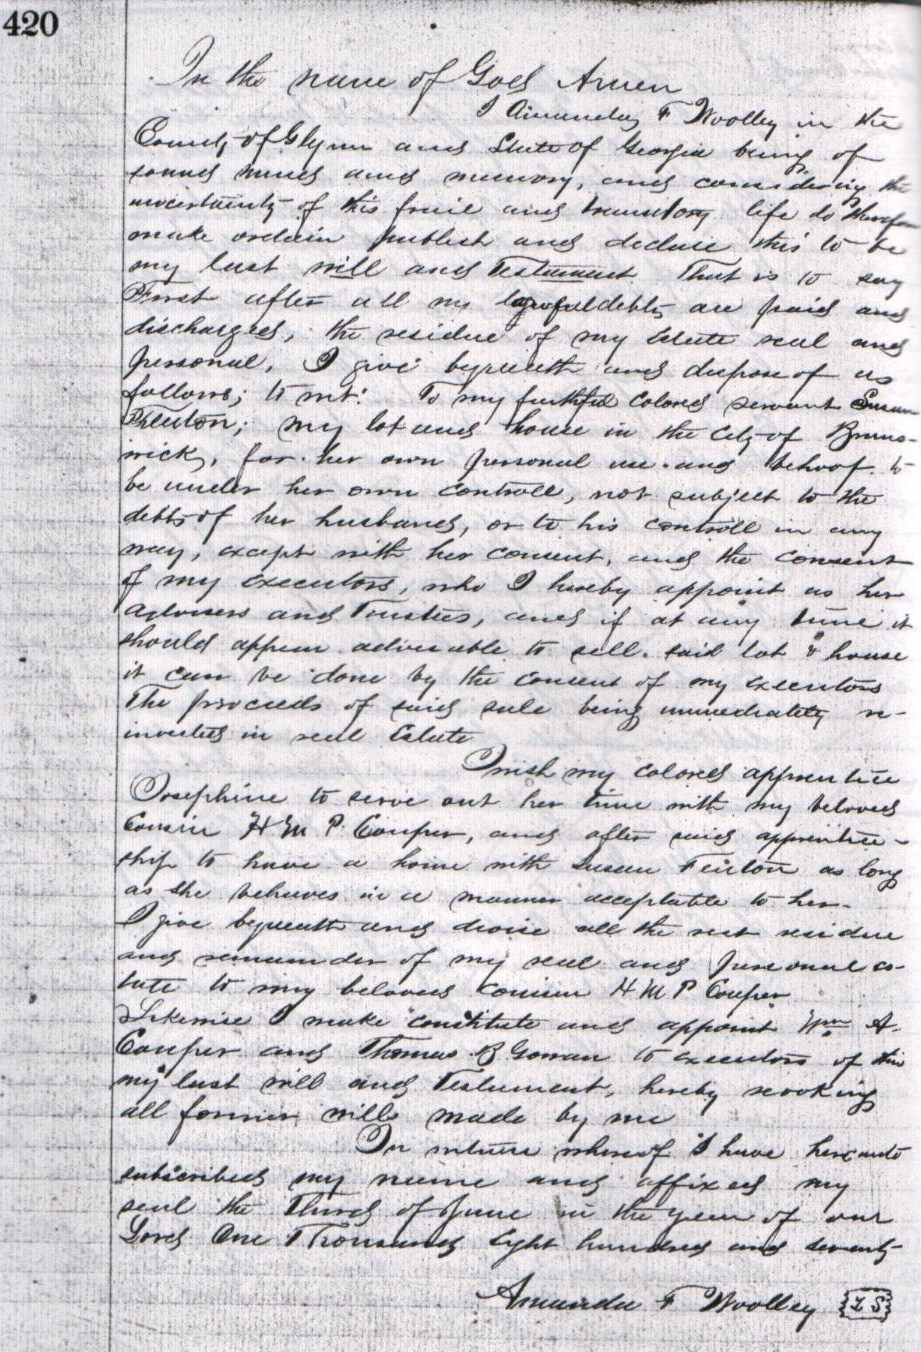 420
In the name of God Amen
I Amanda F Woolley in the
County of Glynn and State of Georgia being of
sound mind and memory, and considering the
uncertainty of this frail and transitory life do therefore
make ordain publish and declare this to be
my last will and Testament That is to say
First after all my lawful debts are paid and
discharged, the residue of my Estate real and
personal, I give bequeath and dispose of as
follows; to wit: To my faithful colored servant Susan
Fenton; my lot and house in the City of Bruns-
wick, for her own personal use and behoof to
be under her own controll, not subject to the
debts of her husband, or to his controll in any
way, except with her consent, and the consent
of my executors, who I hereby appoint as her
advisers and Trustees, and if at any time it
should appear advisable to sell said lot & house
it can be done by the consent of my executors
The proceeds of said sale being immediately re-
invested in real Estate
I wish my colored apprentice
Josephine to serve out her time with my beloved
Cousin H M P Couper, and after said apprentice-
ship to have a home with Susan Fenton as long
as she behaves in a manner acceptable to her.
I give bequeath and devise all the rest residue
and remainder of my real and personal es-
tate to my beloved cousin H M P Couper
Likewise I make constitute and appoint Wm A.
Couper and Thomas B Gowan to executors of this
my last will and Testament, hereby revoking
all former wills made by me
In witness whereof I have hereunto
subscribed my name and affixed my
seal the Third of June in the year of our
Lord One Thousand Eight hundred and seventy
Amanda F Woolley L S